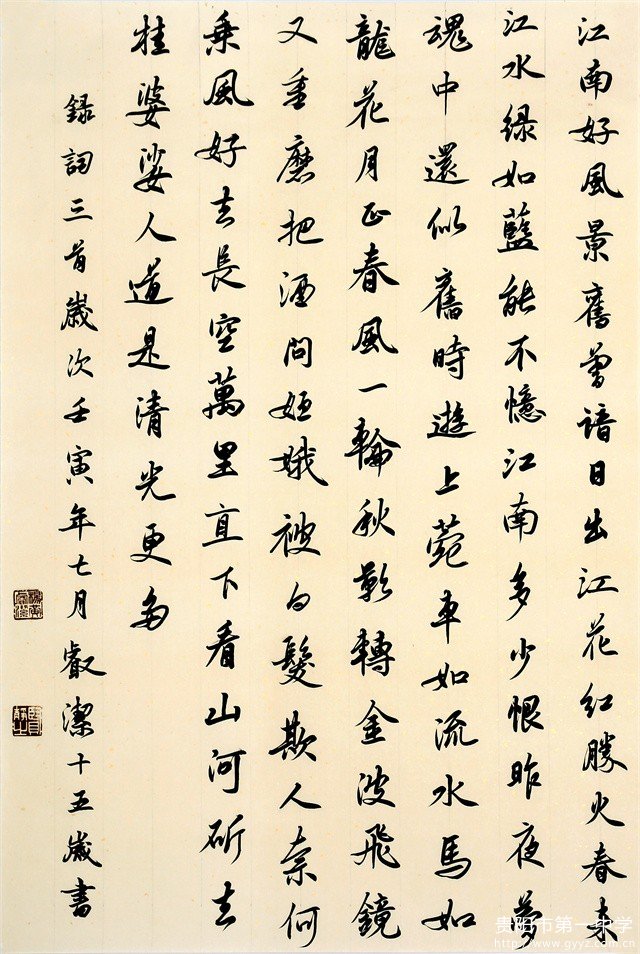 江南好風景舊曾諳日出江花紅勝火春來
江水綠如藍能不憶江南多少恨昨夜夢
魂中還似舊時遊上苑車如流水馬如
龍花月正春風一輪秋影轉金波飛鏡
又重磨把酒問姮娥被白髮欺人奈何
乘風好去長空萬里直下看山河斫去
桂婆娑人道是清光更多
錄詞三首歲次壬寅年七月叡潔十五歲書
贵阳市第一中学
http://www.gyyz.com.cn